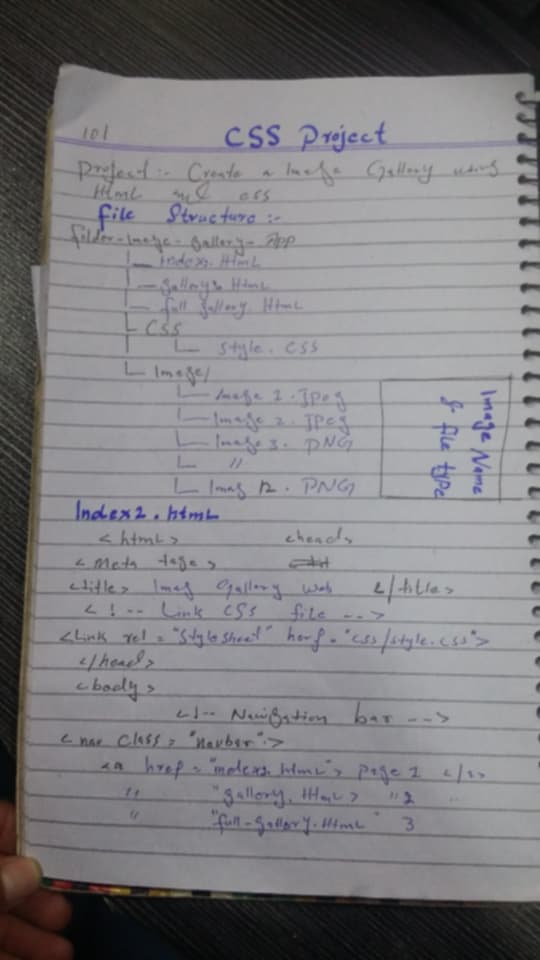 101
CSS Project
Project:- Create a Image Gallery using
Html and css
file Structure:-
folder-Image-gallery-App
Index2.Html
gallery2.Html
full gallery.Html
CSS
Style.CSS
Image/
Image 1.Jpeg
Image 2.Jpeg
Image 3.PNG
"
Imag 12.PNG
Image Name
& file type
Index2.html
<html> <head>
<Meta tage>
<title> Imag Gallery web </title>
<!-- Link CSS file -->
<Link rel="Stylesheet" herf="css/style.css">
</head>
<body>
<!-- Navigation bar -->
<nav Class="navbar">
<a href="index2.html"> page 1 </a>
" "gallery.Html> " 2 "
" "full-gallery.Html" 3